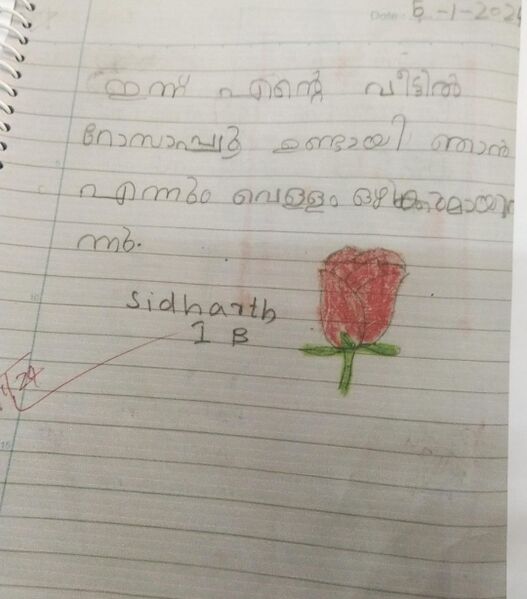 Date: 5-1-202
ഇന്ന് എന്റെ വീട്ടിൽ
റോസാപ്പൂ ഉണ്ടായി ഞാൻ
എന്നും വെള്ളം ഒഴിക്കുമായിരു
ന്നു.
Sidharth
1 B